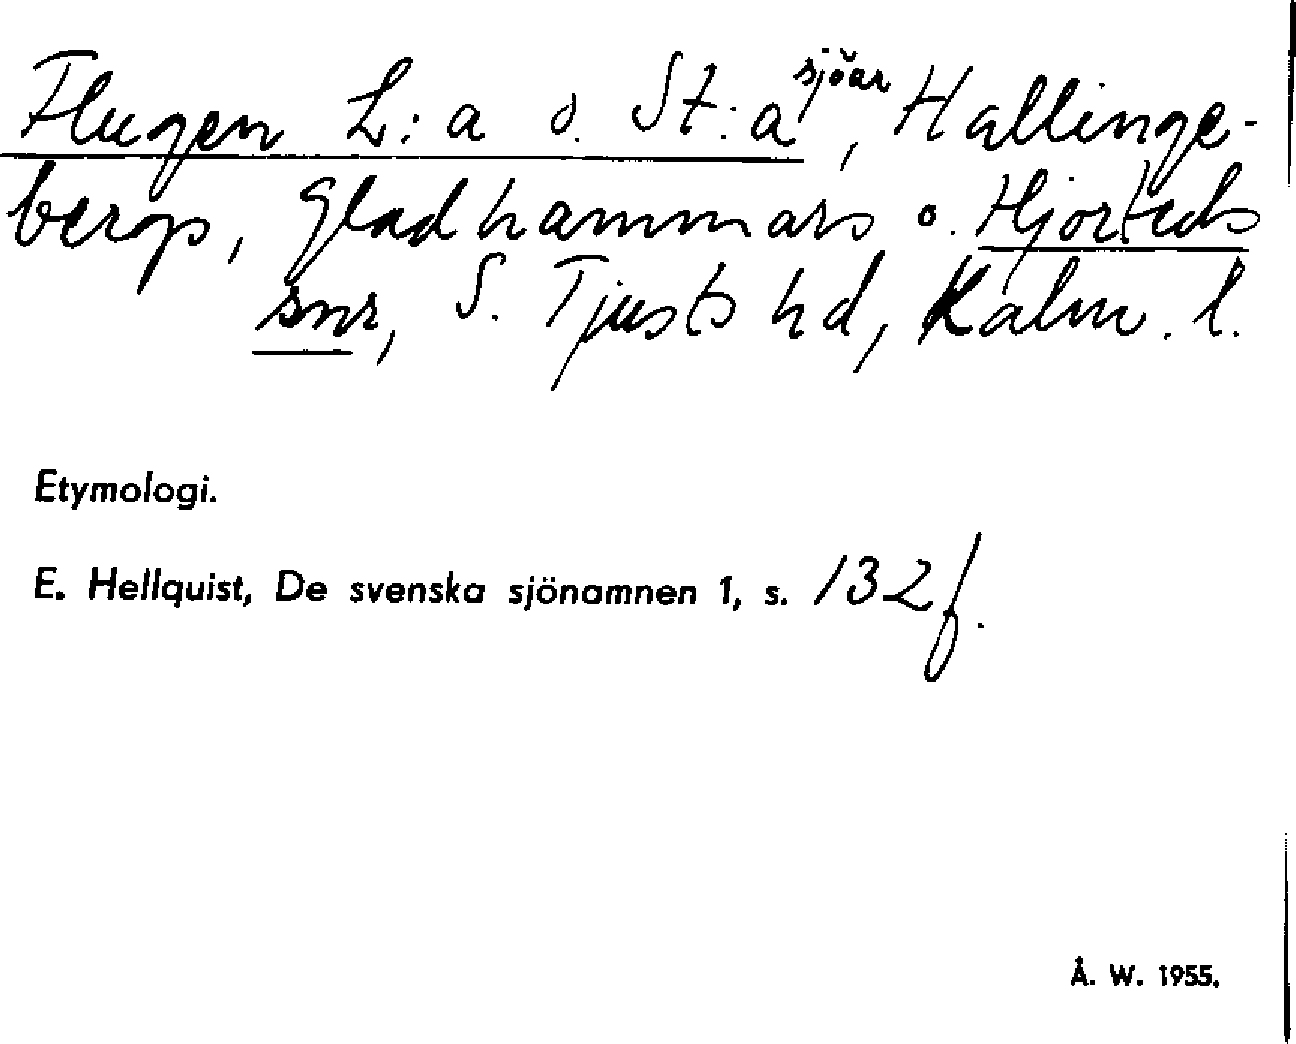 Flugen L:a o. St:a sjöar, Hallinge-
bergs, Gladhammars o. Hjorteds
snr, S. Tjusts hd, Kalm. l.
Etymologi.
E. Hellquist, De svenska sjönamnen 1, s. 132 f.
Å. W. 1955.